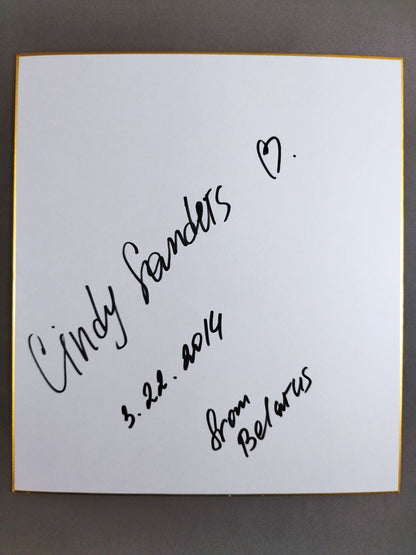 Cindy Sanders ♡.
3.22.2014
from
Belarus